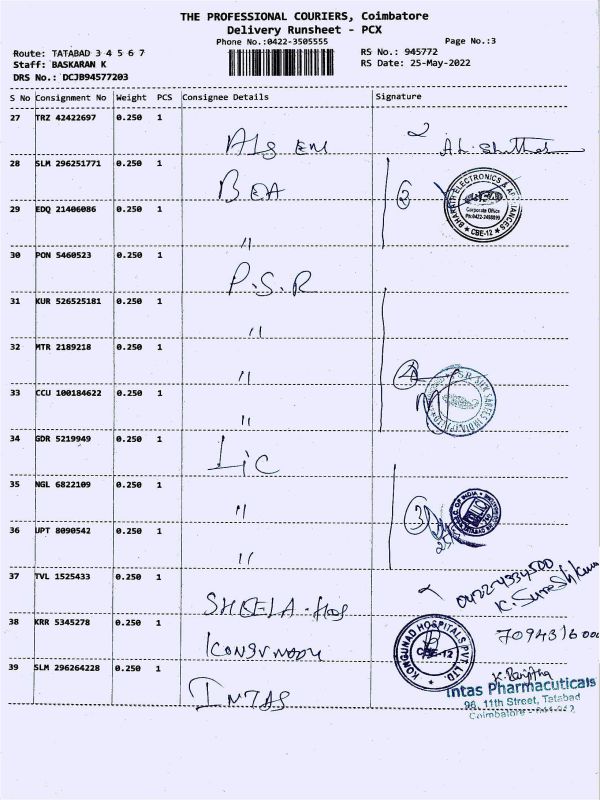 THE PROFESSIONAL COURIERS, Coimbatore
Delivery Runsheet - PCX
Phone No.:0422-3505555 Page No.:3
Route: TATABAD 3 4 5 6 7 RS No.: 945772
Staff: BASKARAN K RS Date: 25-May-2022
DRS No.: DCJB94577203
S No Consignment No Weight PCS Consignee Details Signature
27 TRZ 42422697 0.250 1
28 SLM 296251771 0.250 1
BHARATH ELECTRONICS & APPLIANCES
Corporate Office
CBE-12
29 EDQ 21406086 0.250 1
"
30 PON 5460523 0.250 1
P.S.R
31 KUR 526525181 0.250 1
"
32 MTR 2189218 0.250 1
" 4
33 CCU 100184622 0.250 1
"
34 GDR 5219949 0.250 1
LIC
35 NGL 6822109 0.250 1
" 3
36 UPT 8090542 0.250 1
"
37 TVL 1525433 0.250 1
0422-4334500
K. Suresh Kumar
SHEELA-Hos
38 KRR 5345278 0.250 1
KONGUNAD HOSPITALS PVT. LTD.
CBE-12
39 SLM 296264228 0.250 1
INTAS
Intas Pharmacuticals
96, 11th Street, Tatabad